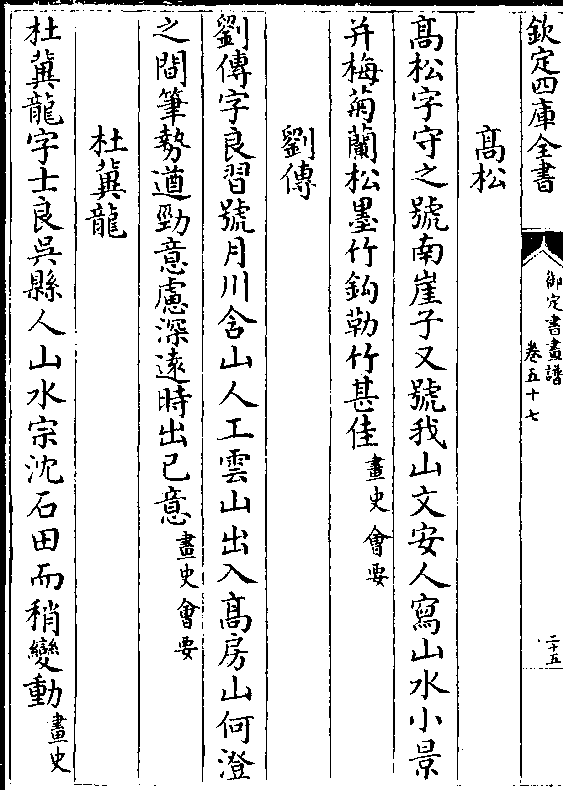 欽定四庫全書
御定書畫譜
卷五十七
二十五
髙松
髙松字守之號南崖子又號我山文安人寫山水小景
并梅菊蘭松墨竹鈎勒竹甚佳畫史會要
劉傳
劉傳字良習號月川含山人工雲山出入髙房山何澄
之間筆勢遒勁意慮深逺時出已意畫史會要
杜冀龍
杜冀龍字士良吳縣人山水宗沈石田而稍變動畫史